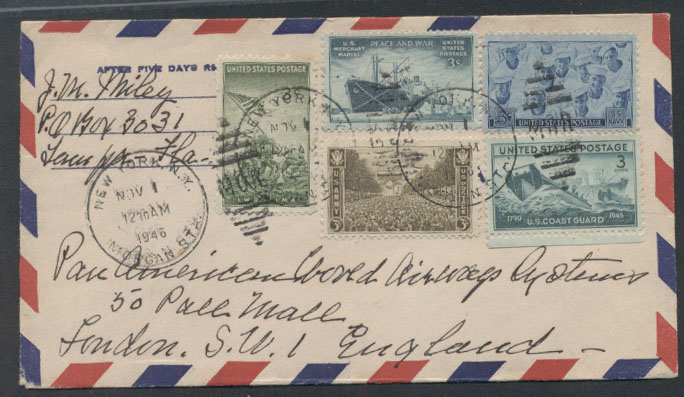 AFTER FIVE DAYS
J.M. Miley
P.O Box 3031
Tampa, Fla—
UNITED STATES POSTAGE
IWO JIMA
U.S. MERCHANT MARINE
PEACE AND WAR
UNITED STATES POSTAGE
3¢
3¢ UNITED STATES POSTAGE
U.S. ARMY
3¢
UNITED STATES POSTAGE
3
CENTS
1790 U.S. COAST GUARD 1945
NEW YORK, N.Y.
NOV 1
12 30 AM
1946
MORGAN STA.
NEW YORK, N.Y.
NOV 1
Pan American World Airways Systems
50 Pall Mall
London. S.W.1 England —